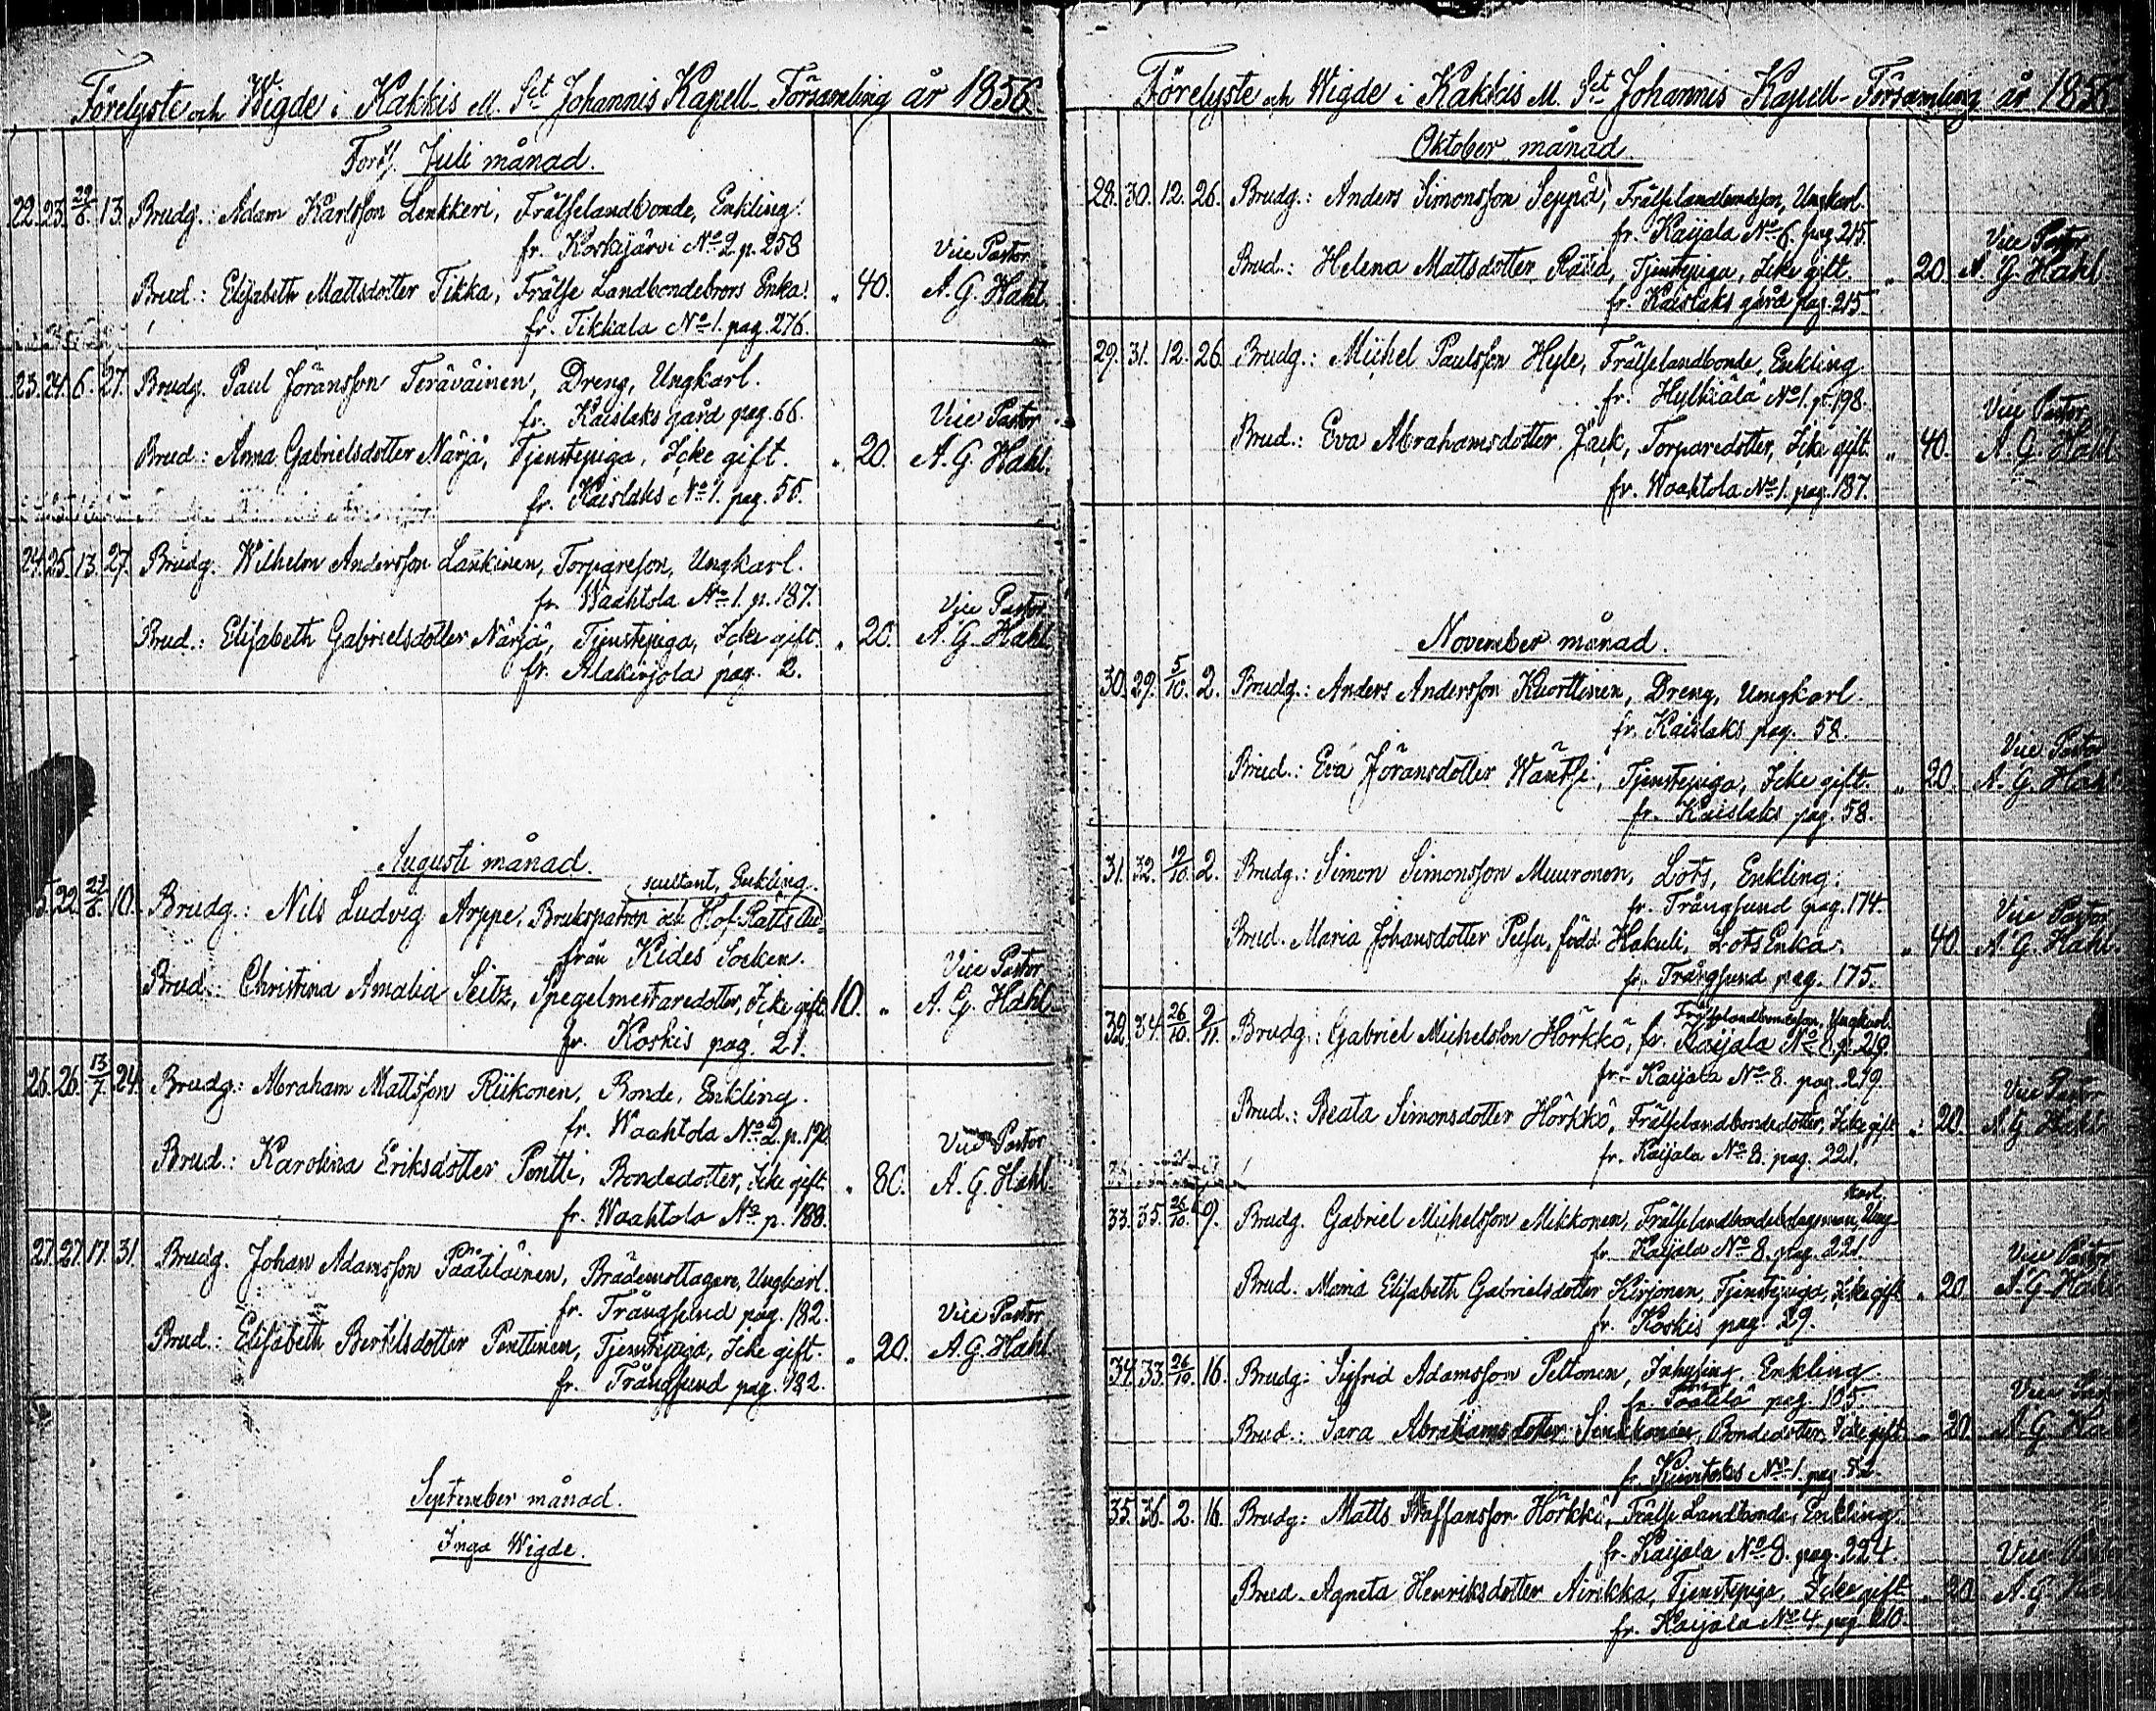 Förelyste och Wigde i Kakkis M. Sct Johannis Kapell-Församling år 1856.
Forts. Juli månad.
22. 23. 29/6. 13. Brudg.: Adam Karlsson Lenkkeri, Frälselandbonde, Enkling.
fr. Koskijärvi No 2. p. 258
Vice Pastor
Brud.: Elisabeth Mattsdotter Tikka, Frälse Landbondebrors Enka. „ 40. A. G. Hahl.
fr. Tikkala No 1. pag. 276.
23. 24. 6. 27. Brudg. Paul Jöransson Teräväinen, Dreng, Ungkarl.
fr. Kaislaks gård pag. 66.
Vice Pastor
Brud.: Anna Gabrielsdotter Närjä, Tjenstepiga, Icke gift. „ 20. A. G. Hahl.
fr. Kaislaks No 1. pag. 55.
24. 25. 13. 27. Brudg. Wilhelm Andersson Lankinen, Torpareson, Ungkarl.
fr. Waahtola No 1. p. 187.
Vice Pastor
Brud.: Elisabeth Gabrielsdotter Närjä, Tjenstepiga, Icke gift. „ 20. A. G. Hahl
fr. Alakirjola pag. 2.
Augusti månad.
scultant, Enkling.
5. 22. 10. Brudg.: Nils Ludvig Arppe, Brukspatron och Hof-Rätts Au-
från Kides Socken.
Vice Pastor
Brud.: Christina Amalia Seitz, Spegelmestaredotter, Icke gift 10. „ A. G. Hahl
fr. Koskis pag. 21.
26. 26. 13/7. 24. Brudg.: Abraham Mattsson Riikonen, Bonde, Enkling.
fr. Waahtola No 2. p. 190
Vice Pastor
Brud.: Karolina Eriksdotter Pentti, Bondedotter, Icke gift. „ 80. A. G. Hahl.
fr. Waahtola No p. 188.
27. 27. 17. 31. Brudg. Johan Adamsson Päätiläinen, Brädemottagare, Ungkarl.
fr. Trångsund pag. 182.
Vice Pastor
Brud.: Elisabeth Bertilsdotter Penttinen, Tjenstepiga, Icke gift. „ 20. A. G. Hahl.
fr. Trångsund pag. 182.
September månad.
Inga Wigde.
Förelyste och Wigde i Kakkis M. Sct Johannis Kapell-Församling år 1856
Oktober månad.
28. 30. 12. 26. Brudg.: Anders Simonsson Seppä, Frälselandbondeson, Ungkarl.
fr. Kaijala No 6. pag 215.
Vice Pastor
Brud.: Helena Mattsdotter Rätiä, Tjenstepiga, Icke gift. „ 20. A. G. Hahl
fr. Kaislaks gård pag. 215
29. 31. 12. 26. Brudg.: Michel Paulsson Hyle, Frälselandbonde, Enkling.
fr. Hylkiälä No 1. p. 198.
Vice Pastor
Brud.: Eva Abrahamsdotter Jäck, Torparedotter, Icke gift. „ 40. A. G. Hahl
fr. Waahtola No 1. pag. 187.
November månad.
30. 29. 5/10. 2. Brudg.: Anders Andersson Kuorttinen, Dreng, Ungkarl.
fr. Kaislaks pag. 58.
Vice Pastor
Brud.: Eva Jöransdotter Wäntsi, Tjenstepiga, Icke gift. „ 20. A. G. Hahl
fr. Kaislaks pag. 58.
31. 32. 12/10. 2. Brudg.: Simon Simonsson Muuronen, Lots, Enkling.
fr. Trångsund pag. 174.
Vice Pastor
Brud. Maria Johansdotter Pesu, född Hakuli, Lots Enka. „ 40. A. G. Hahl.
fr. Trångsund pag. 175.
Frälselandbondeson, Ungkarl.
32. 34. 26/10. 2/11. Brudg.: Gabriel Michelsson Hörkkö, fr. Kaijala No 8. p. 219
fr. Kaijala No 8. pag. 219.
Vice Pastor
Brud.: Beata Simonsdotter Hörkkö, Frälselandbondedotter, Icke gift „ 20. A. G. Hahl
fr. Kaijala No 8. pag. 221.
karl.
33. 35. 26/10. 9. Brudg. Gabriel Michelsson Mikkonen, Frälselandbondebolagsman, Ung-
fr. Kaijala No 8. pag. 221.
Vice Pastor
Brud. Maria Elisabeth Gabrielsdotter Kirjonen, Tjenstepiga, Icke gift „ 20. A. G. Hahl
fr. Koskis pag. 29.
34. 33. 26/10. 16. Brudg: Sigfrid Adamsson Peltonen, Inhysing, Enkling.
fr. Päätilä pag. 105.
Brud.: Sara Abrahamsdotter Sinkkonen, Bondedotter, Icke gift „ 20. A. G. Ha
fr. No 1. pag. 52.
35. 36. 2. 16. Brudg: Matts Staffansson Hörkkö, Frälse Landbonde, Enkling.
fr. Kaijala No 8. pag. 224.
Vice
Brud. Agneta Henriksdotter Airikka, Tjenstepiga, Icke gift „ 20. A. G.
fr. Kaijala No 4. pag. 210.